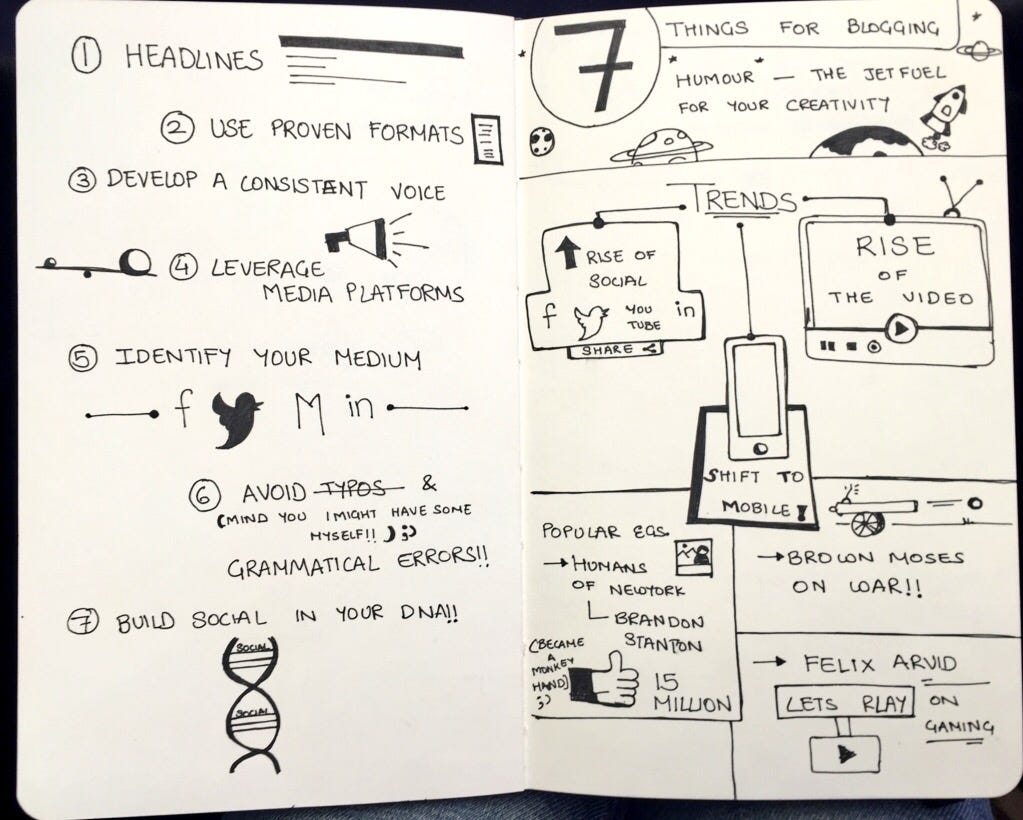 1 HEADLINES
2 USE PROVEN FORMATS
3 DEVELOP A CONSISTENT VOICE
4 LEVERAGE
MEDIA PLATFORMS
5 IDENTIFY YOUR MEDIUM
f M in
6 AVOID TYPOS &
(MIND YOU I MIGHT HAVE SOME
MYSELF!!) ;)
GRAMMATICAL ERRORS!!
7 BUILD SOCIAL IN YOUR DNA!!
SOCIAL
SOCIAL
7 THINGS FOR BLOGGING
"HUMOUR" — THE JETFUEL
FOR YOUR CREATIVITY
TRENDS
RISE OF
SOCIAL
f YOU
TUBE in
SHARE
RISE
OF
THE VIDEO
SHIFT TO
MOBILE!
POPULAR EGS.
→ HUMANS
OF NEWYORK
BRANDON
STANTON
(BECAME
A
MONKEY
HAND)
;)
15
MILLION
→ BROWN MOSES
ON WAR!!
→ FELIX ARVID
LETS PLAY ON
GAMING